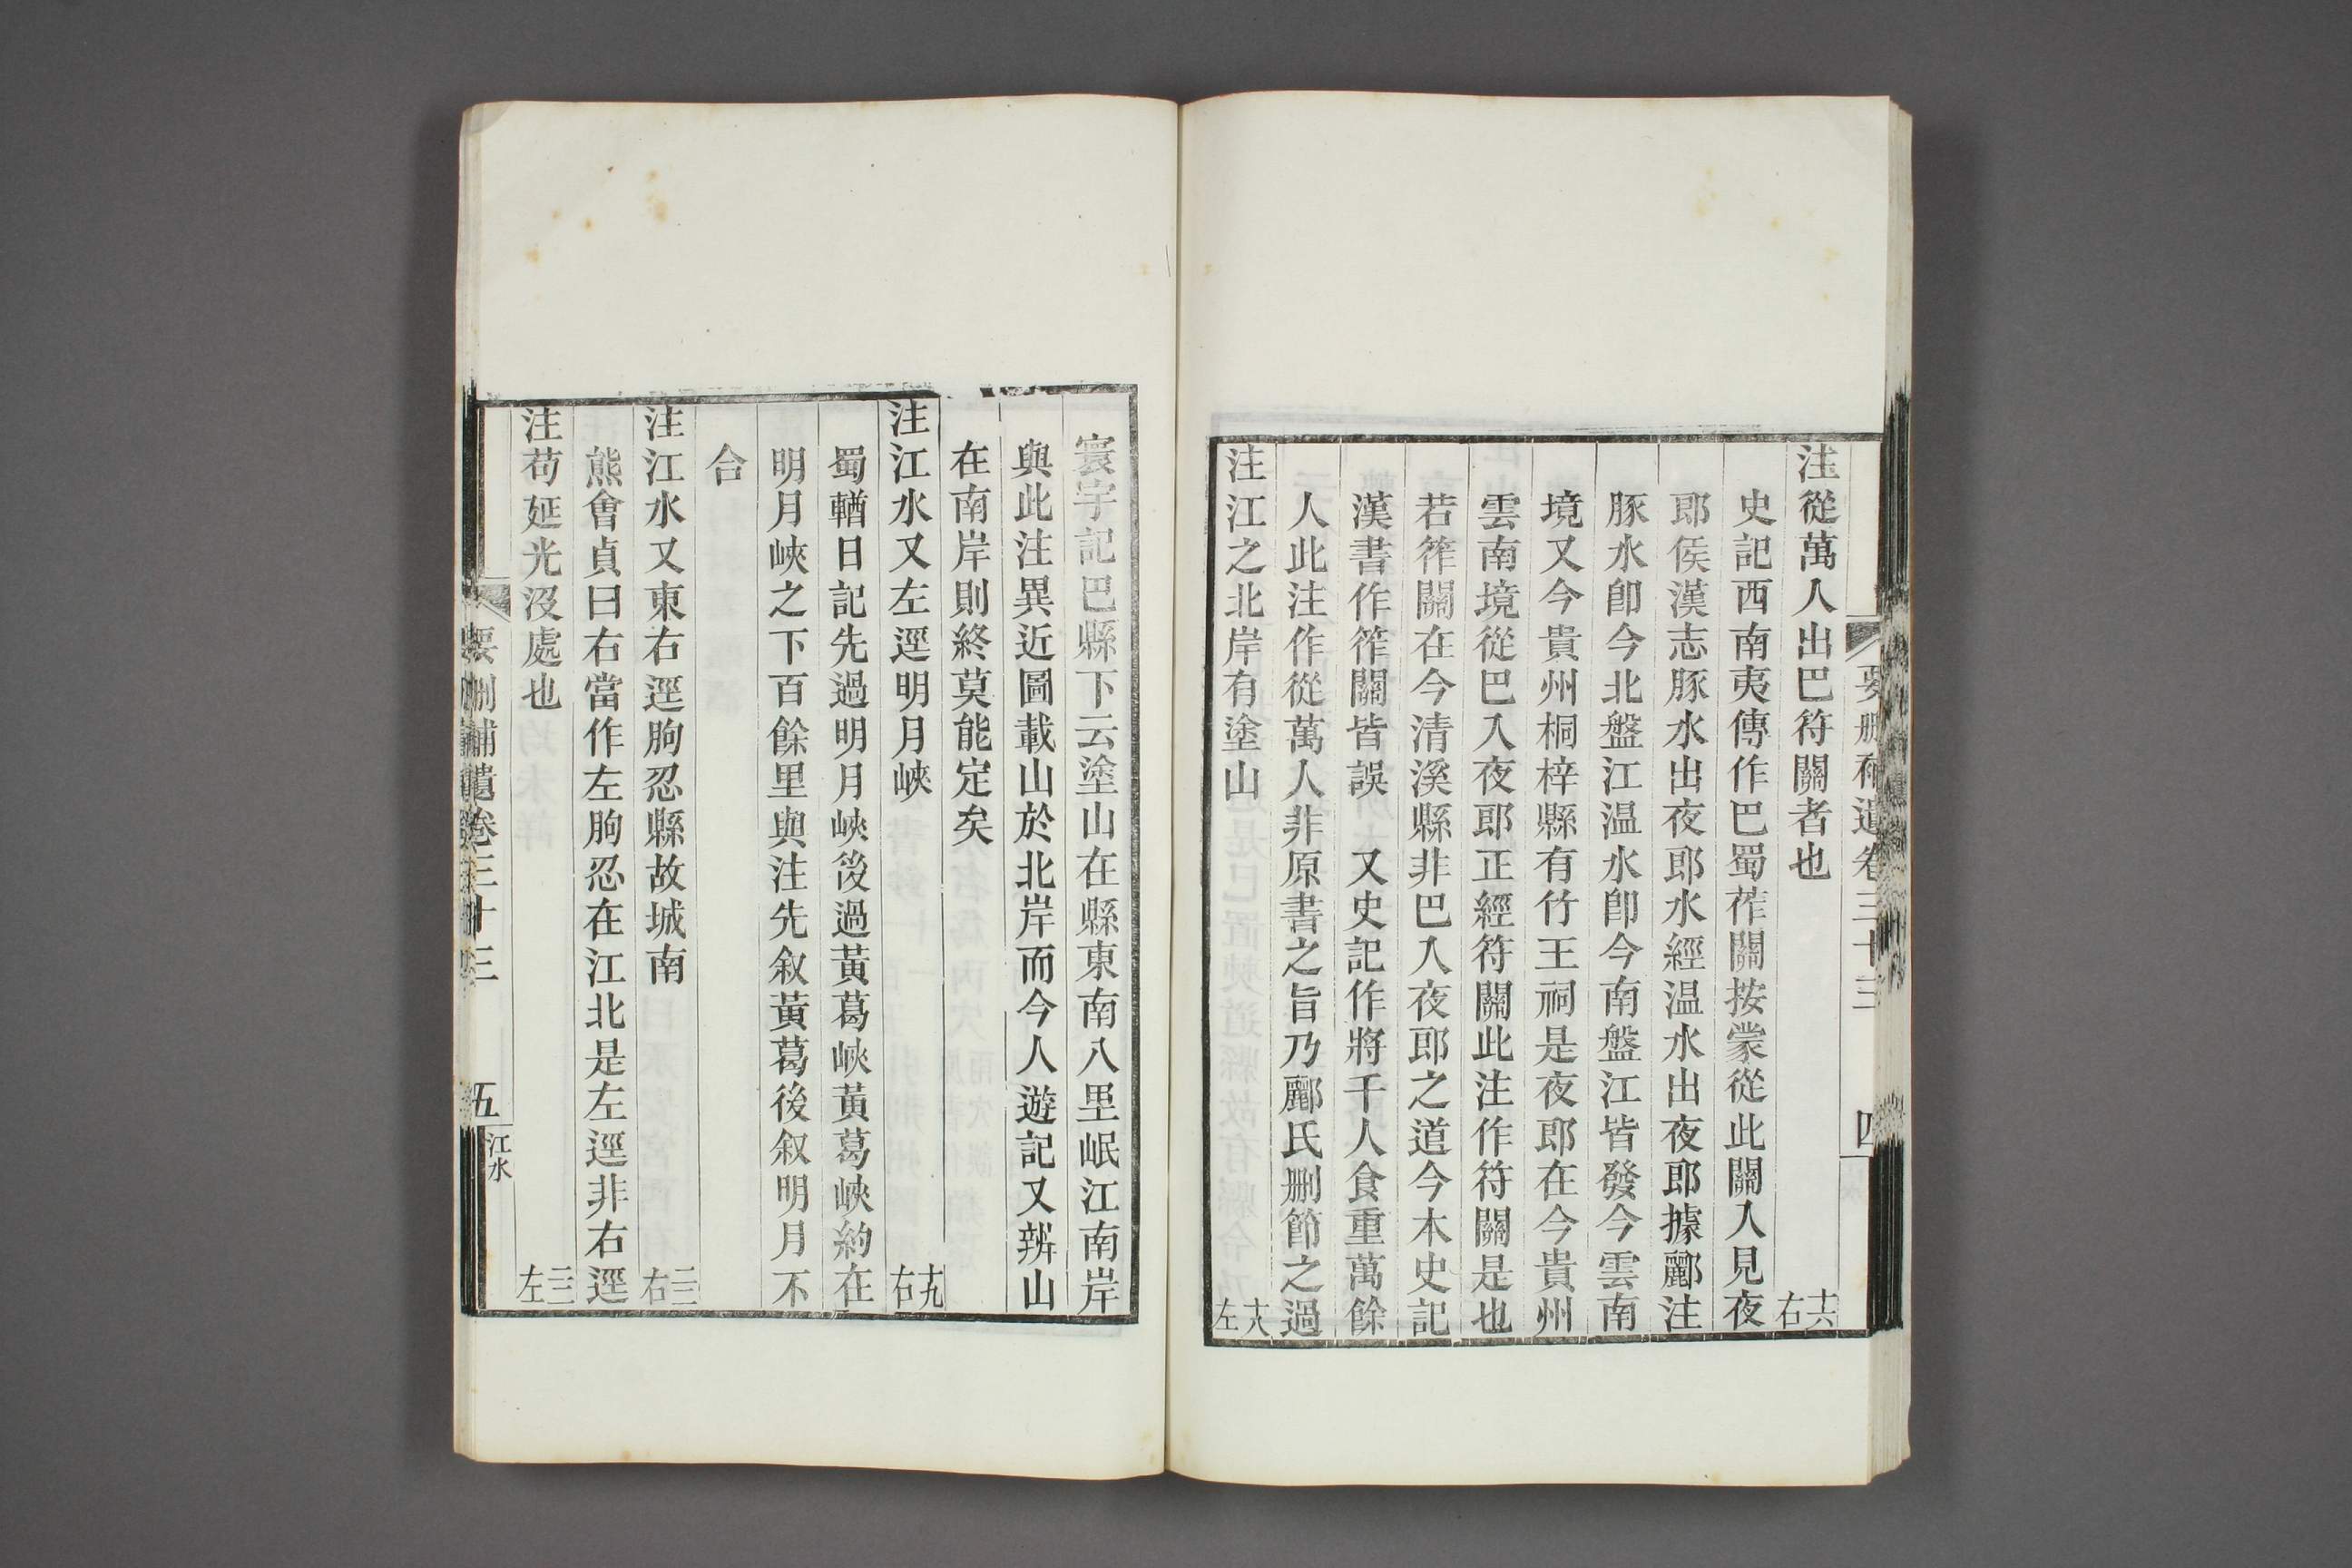 要删補遺卷三十三 四
注從萬人出巴符關者也 十六右
史記西南夷傳作巴蜀莋關按蒙從此關入見夜
郎侯漢志豚水出夜郎水經温水出夜郎據酈注
豚水卽今北盤江温水卽今南盤江皆發今雲南
境又今貴州桐梓縣有竹王祠是夜郎在今貴州
雲南境從巴入夜郎正經符關此注作符關是也
若筰關在今清溪縣非巴入夜郎之道今本史記
漢書作筰關皆誤 又史記作將千人食重萬餘
人此注作從萬人非原書之旨乃酈氏删節之過
注江之北岸有塗山 十八左
寰宇記巴縣下云塗山在縣東南八里岷江南岸
與此注異近圖載山於北岸而今人遊記又辨山
在南岸則終莫能定矣
注江水又左逕明月峽 十九右
蜀輶日記先過明月峽後過黃葛峽黃葛峽約在
明月峽之下百餘里與注先叙黃葛後叙明月不
合
注江水又東右逕朐忍縣故城南 三三右
熊會貞曰右當作左朐忍在江北是左逕非右逕
注苟延光没處也 三三左
要删補遺卷三十三 五 江水